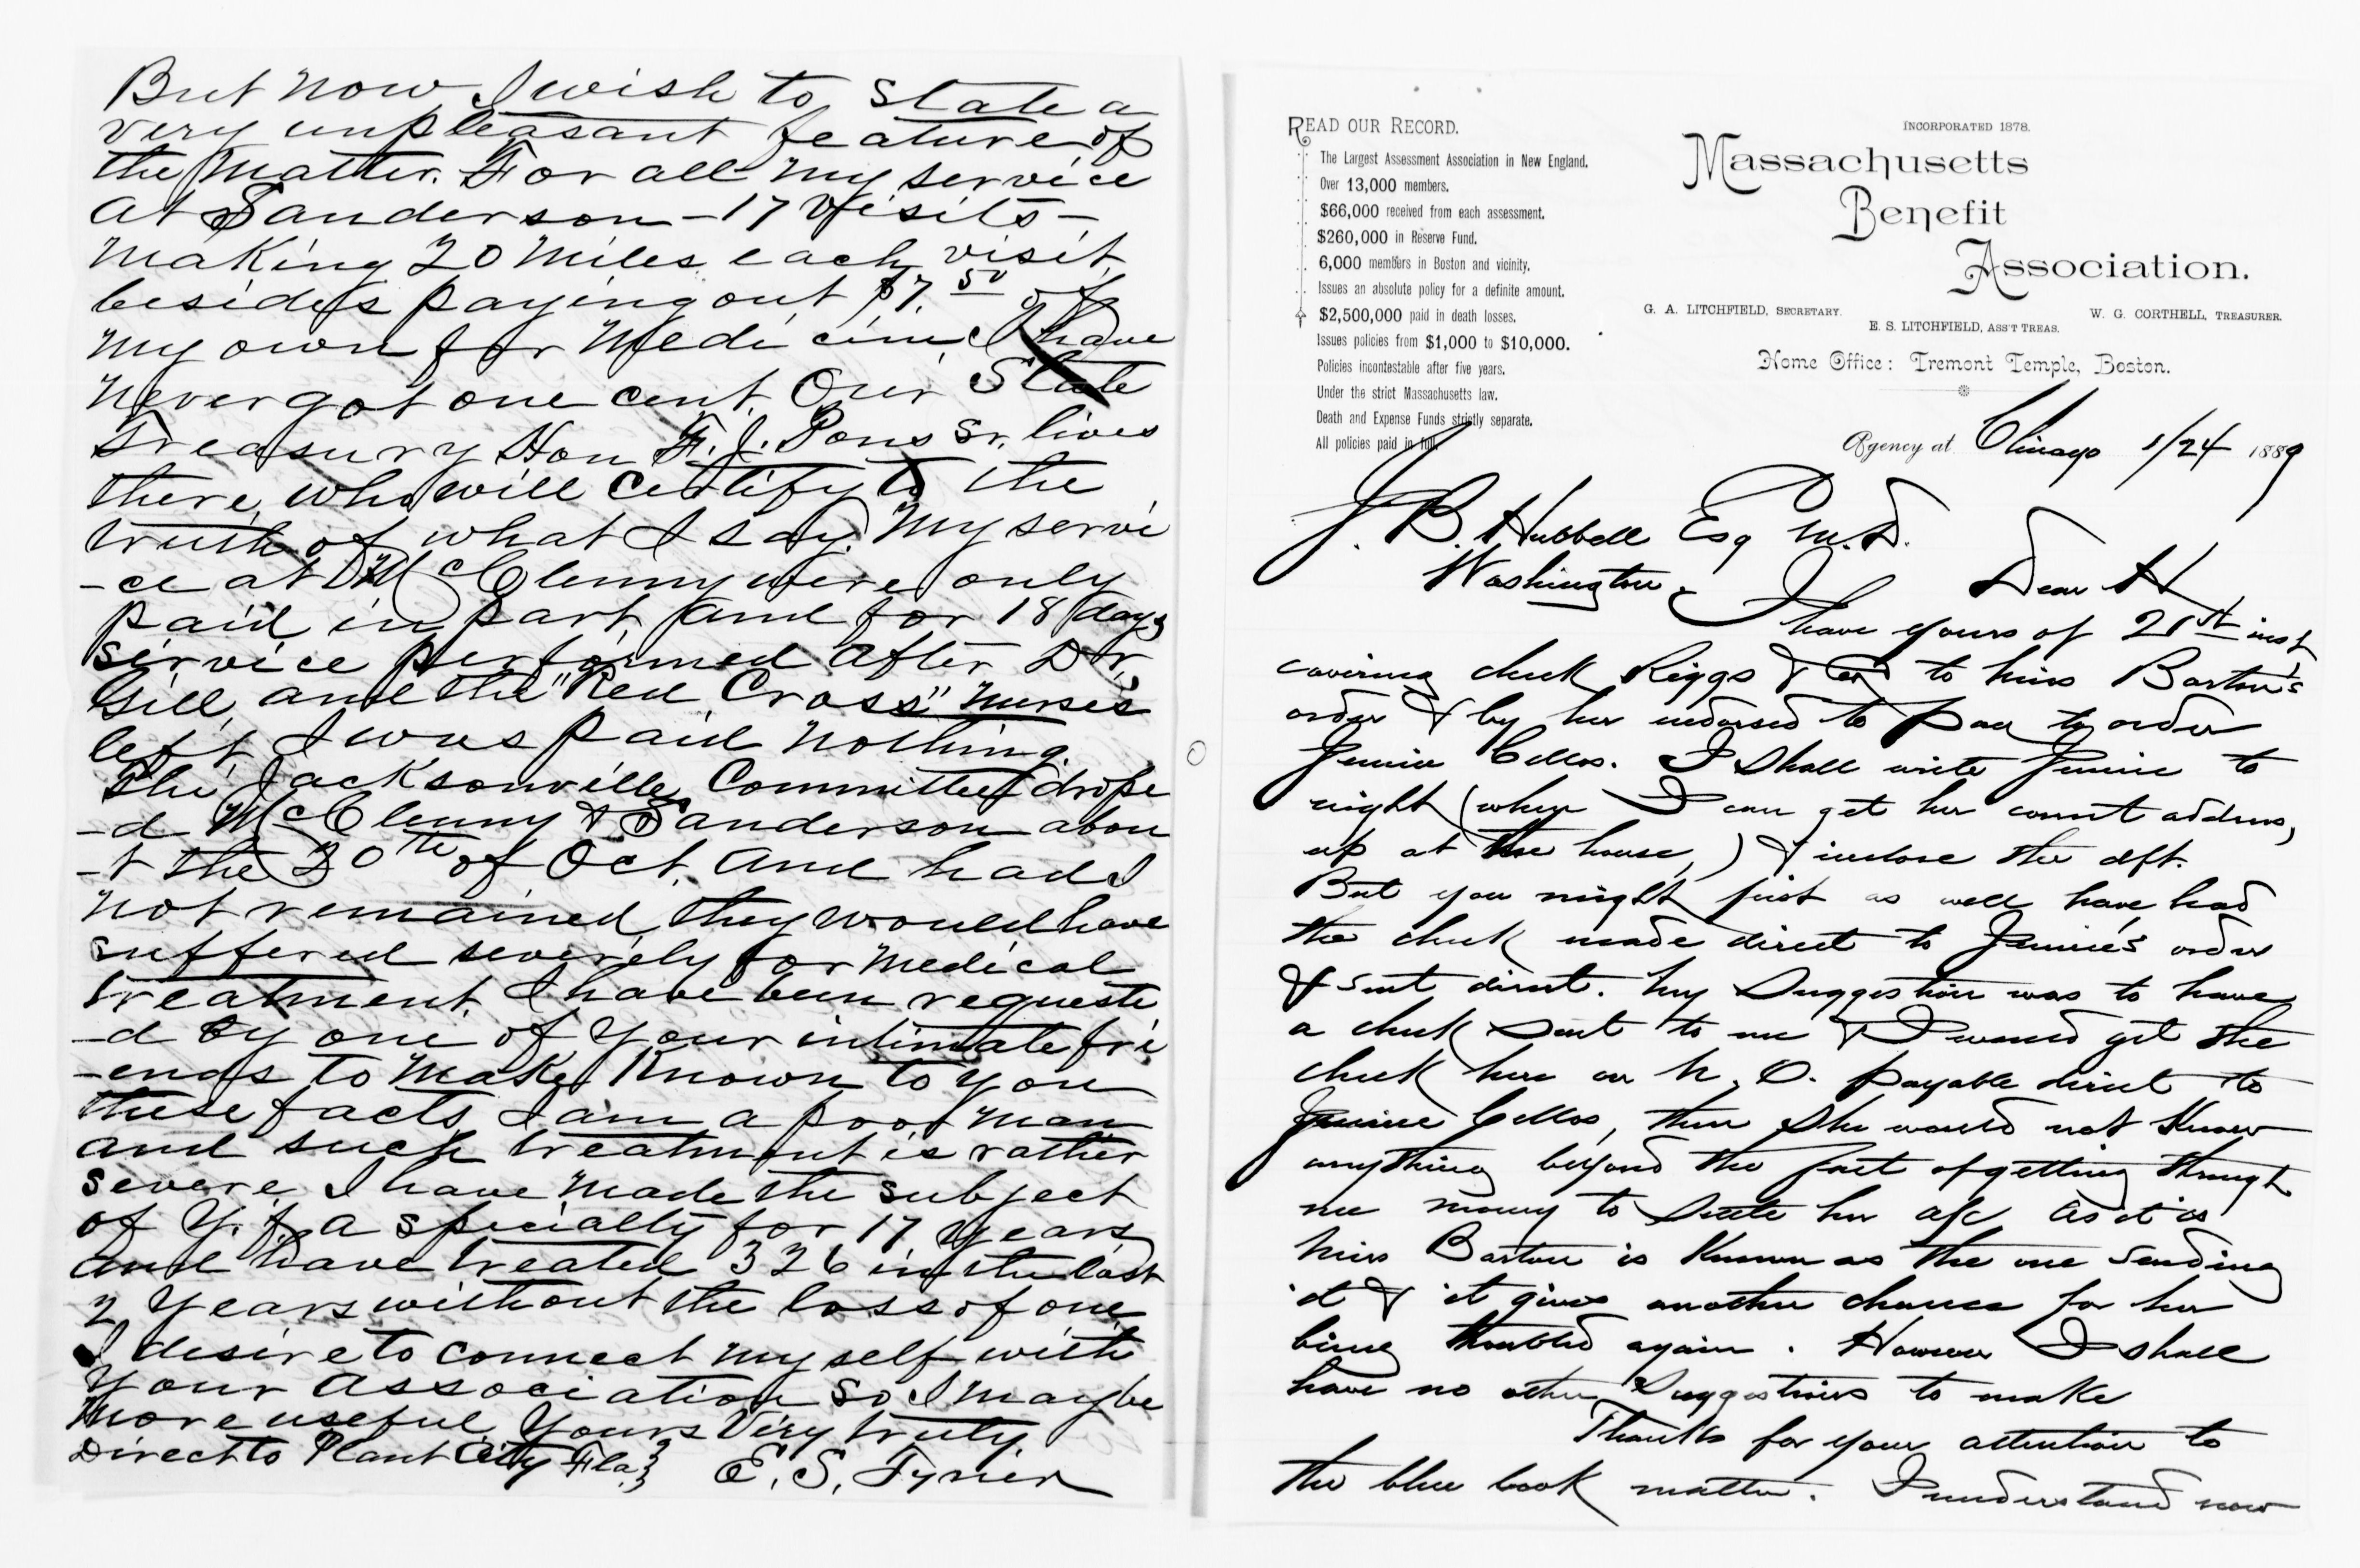 But now I wish to State a
very unpleasant feature of
the matter. For all my service
at Sanderson - 17 visits -
making 20 miles each visit
besides paying out $7.50 of
my own for Medicine I have
never got one cent. Our State
Treasury Hon F. J. Pons Sr. lives
there, who will certify to the
truth of what I say. My servi
-ce at McClenny were only
paid in part, and for 18 days
service performed after Dr.
Gill, and the "Red Cross" nurses
left, I was paid nothing.
The Jacksonville Committee drope
-d McClenny & Sanderson abou
-t the 20th of Oct. and had I
not remained, they would have
suffered severely for medical
treatment. I have been requeste
-d by one of your intimate fri
-ends to make known to you
these facts. I am a poor man
and such treatment is rather
severe. I have made the subject
of Y. f. a specialty for 17 years
and have treated 326 in the last
2 years without the loss of one
I desire to connect myself with
your association so I may be
more useful. Yours Very truly,
Direct to Plant City Fla. } E. S. Tyner
READ OUR RECORD.
The Largest Assessment Association in New England.
Over 13,000 members.
$66,000 received from each assessment.
$260,000 in Reserve Fund.
6,000 members in Boston and vicinity.
Issues an absolute policy for a definite amount.
$2,500,000 paid in death losses.
Issues policies from $1,000 to $10,000.
Policies incontestable after five years.
Under the strict Massachusetts law.
Death and Expense Funds strictly separate.
All policies paid in full.
INCORPORATED 1878.
Massachusetts
Benefit
Association.
G. A. LITCHFIELD, SECRETARY.
W. G. CORTHELL, TREASURER.
E. S. LITCHFIELD, ASS'T TREAS.
Home Office: Tremont Temple, Boston.
Agency at Chicago 1/24 1889
J. B. Hubbell Esq M.D.
Washington
Dear H
I have yours of 21st inst
covering check Riggs & Co to Miss Barton's
order & by her indorsed to pay to order
Jennie. I shall write Jennie to
night (when I can get her correct address,
up at the house,) & inclose the dft.
But you might just as well have had
the check made direct to Jennie's order
& sent direct. My Suggestion was to have
a check sent to me & I would get the
check here on N. O. payable direct to
Jennie, then she would not know
anything beyond the fact of getting through
me money to settle her a/c As it is
Miss Barton is known as the one sending
it & it gives another chance for her
being troubled again. However I shall
have no other Suggestions to make
Thanks for your attention to
the blue book matter. I understand now